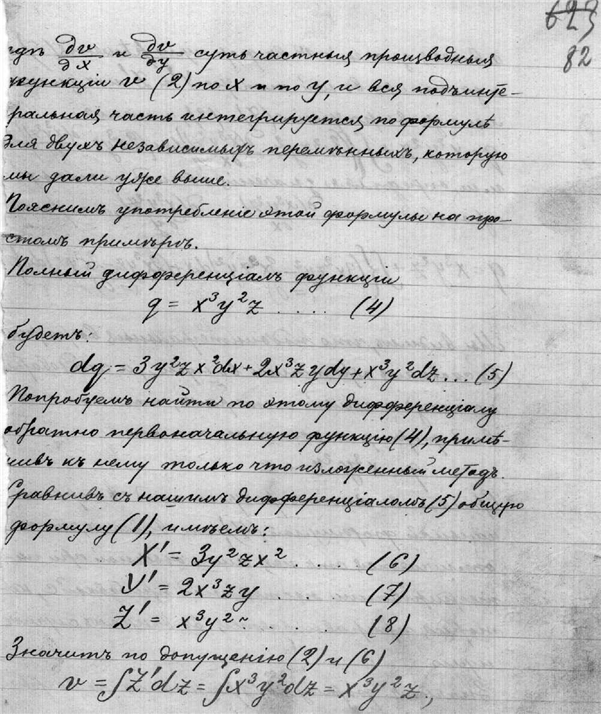 623
82
гдѣ ∂v/∂x и ∂v/∂y суть частныя производныя
функціи v (2) по x и по y, и вся подъинте-
гральная часть интегрируется по формулѣ
для двухъ независимыхъ перемѣнныхъ, которую
мы дали уже выше.
Пояснимъ употребленіе этой формулы на про-
стомъ примѣрѣ.
Полный дифференціалъ функціи
q = x³y²z ..... (4)
будетъ:
dq = 3y²zx²dx + 2x³zydy + x³y²dz ... (5)
Попробуемъ найти по этому дифференціалу
обратно первоначальную функцію (4), примѣ-
нивъ къ нему только что изложенный методъ.
Сравнивъ съ нашимъ дифференціаломъ (5) общую
формулу (1), имѣемъ:
X' = 3y²zx² ... (6)
Y' = 2x³zy ... (7)
Z' = x³y² ..... (8)
Значитъ по допущенію (2) и (6)
v = ∫Z'dz = ∫x³y²dz = x³y²z.,